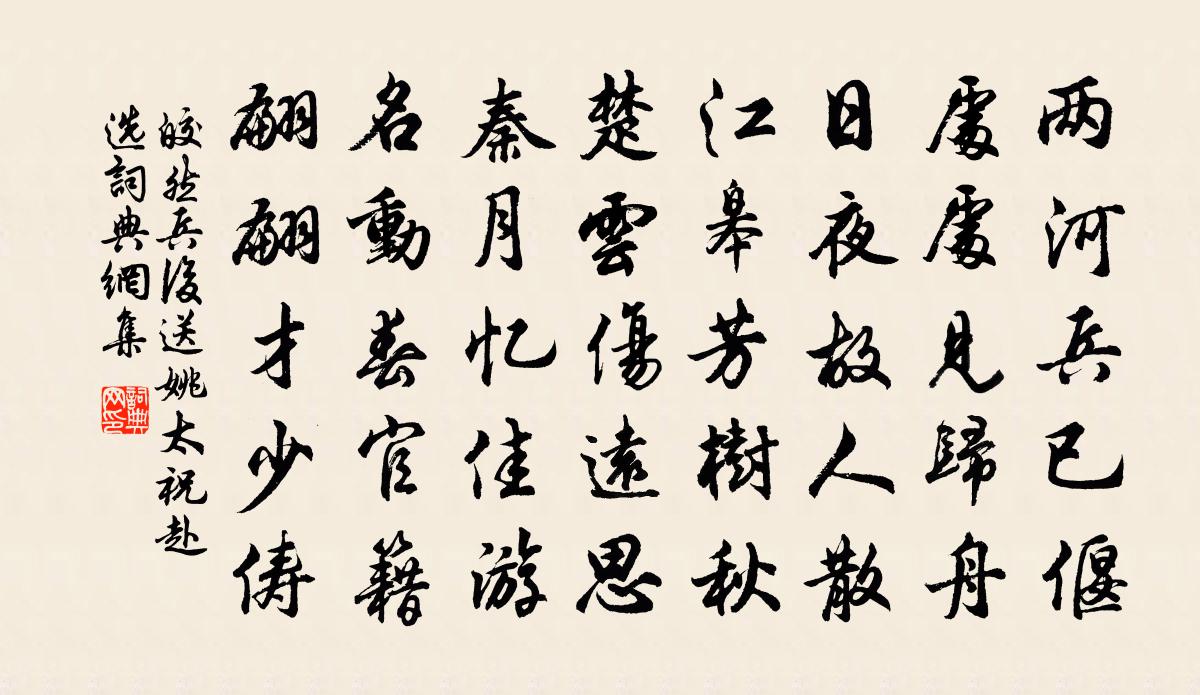 两河兵已偃
處處見歸舟
日夜故人散
江皋芳樹秋
楚雲傷遠思
秦月忆佳游
名動春官籍
翩翩才少俦
皎然兵後送姚太祝赴
选詞典網集
詞典网印